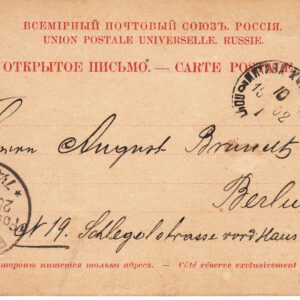 ВСЕМІРНЫЙ ПОЧТОВЫЙ СОЮЗЪ. РОССІЯ.
UNION POSTALE UNIVERSELLE. RUSSIE.
ОТКРЫТОЕ ПИСЬМО. — CARTE POS
15 10
1 02
August
Berlin
N 19. Schlegelstrasse
торонѣ пишется только адресъ. — Côté réservé exclusivement